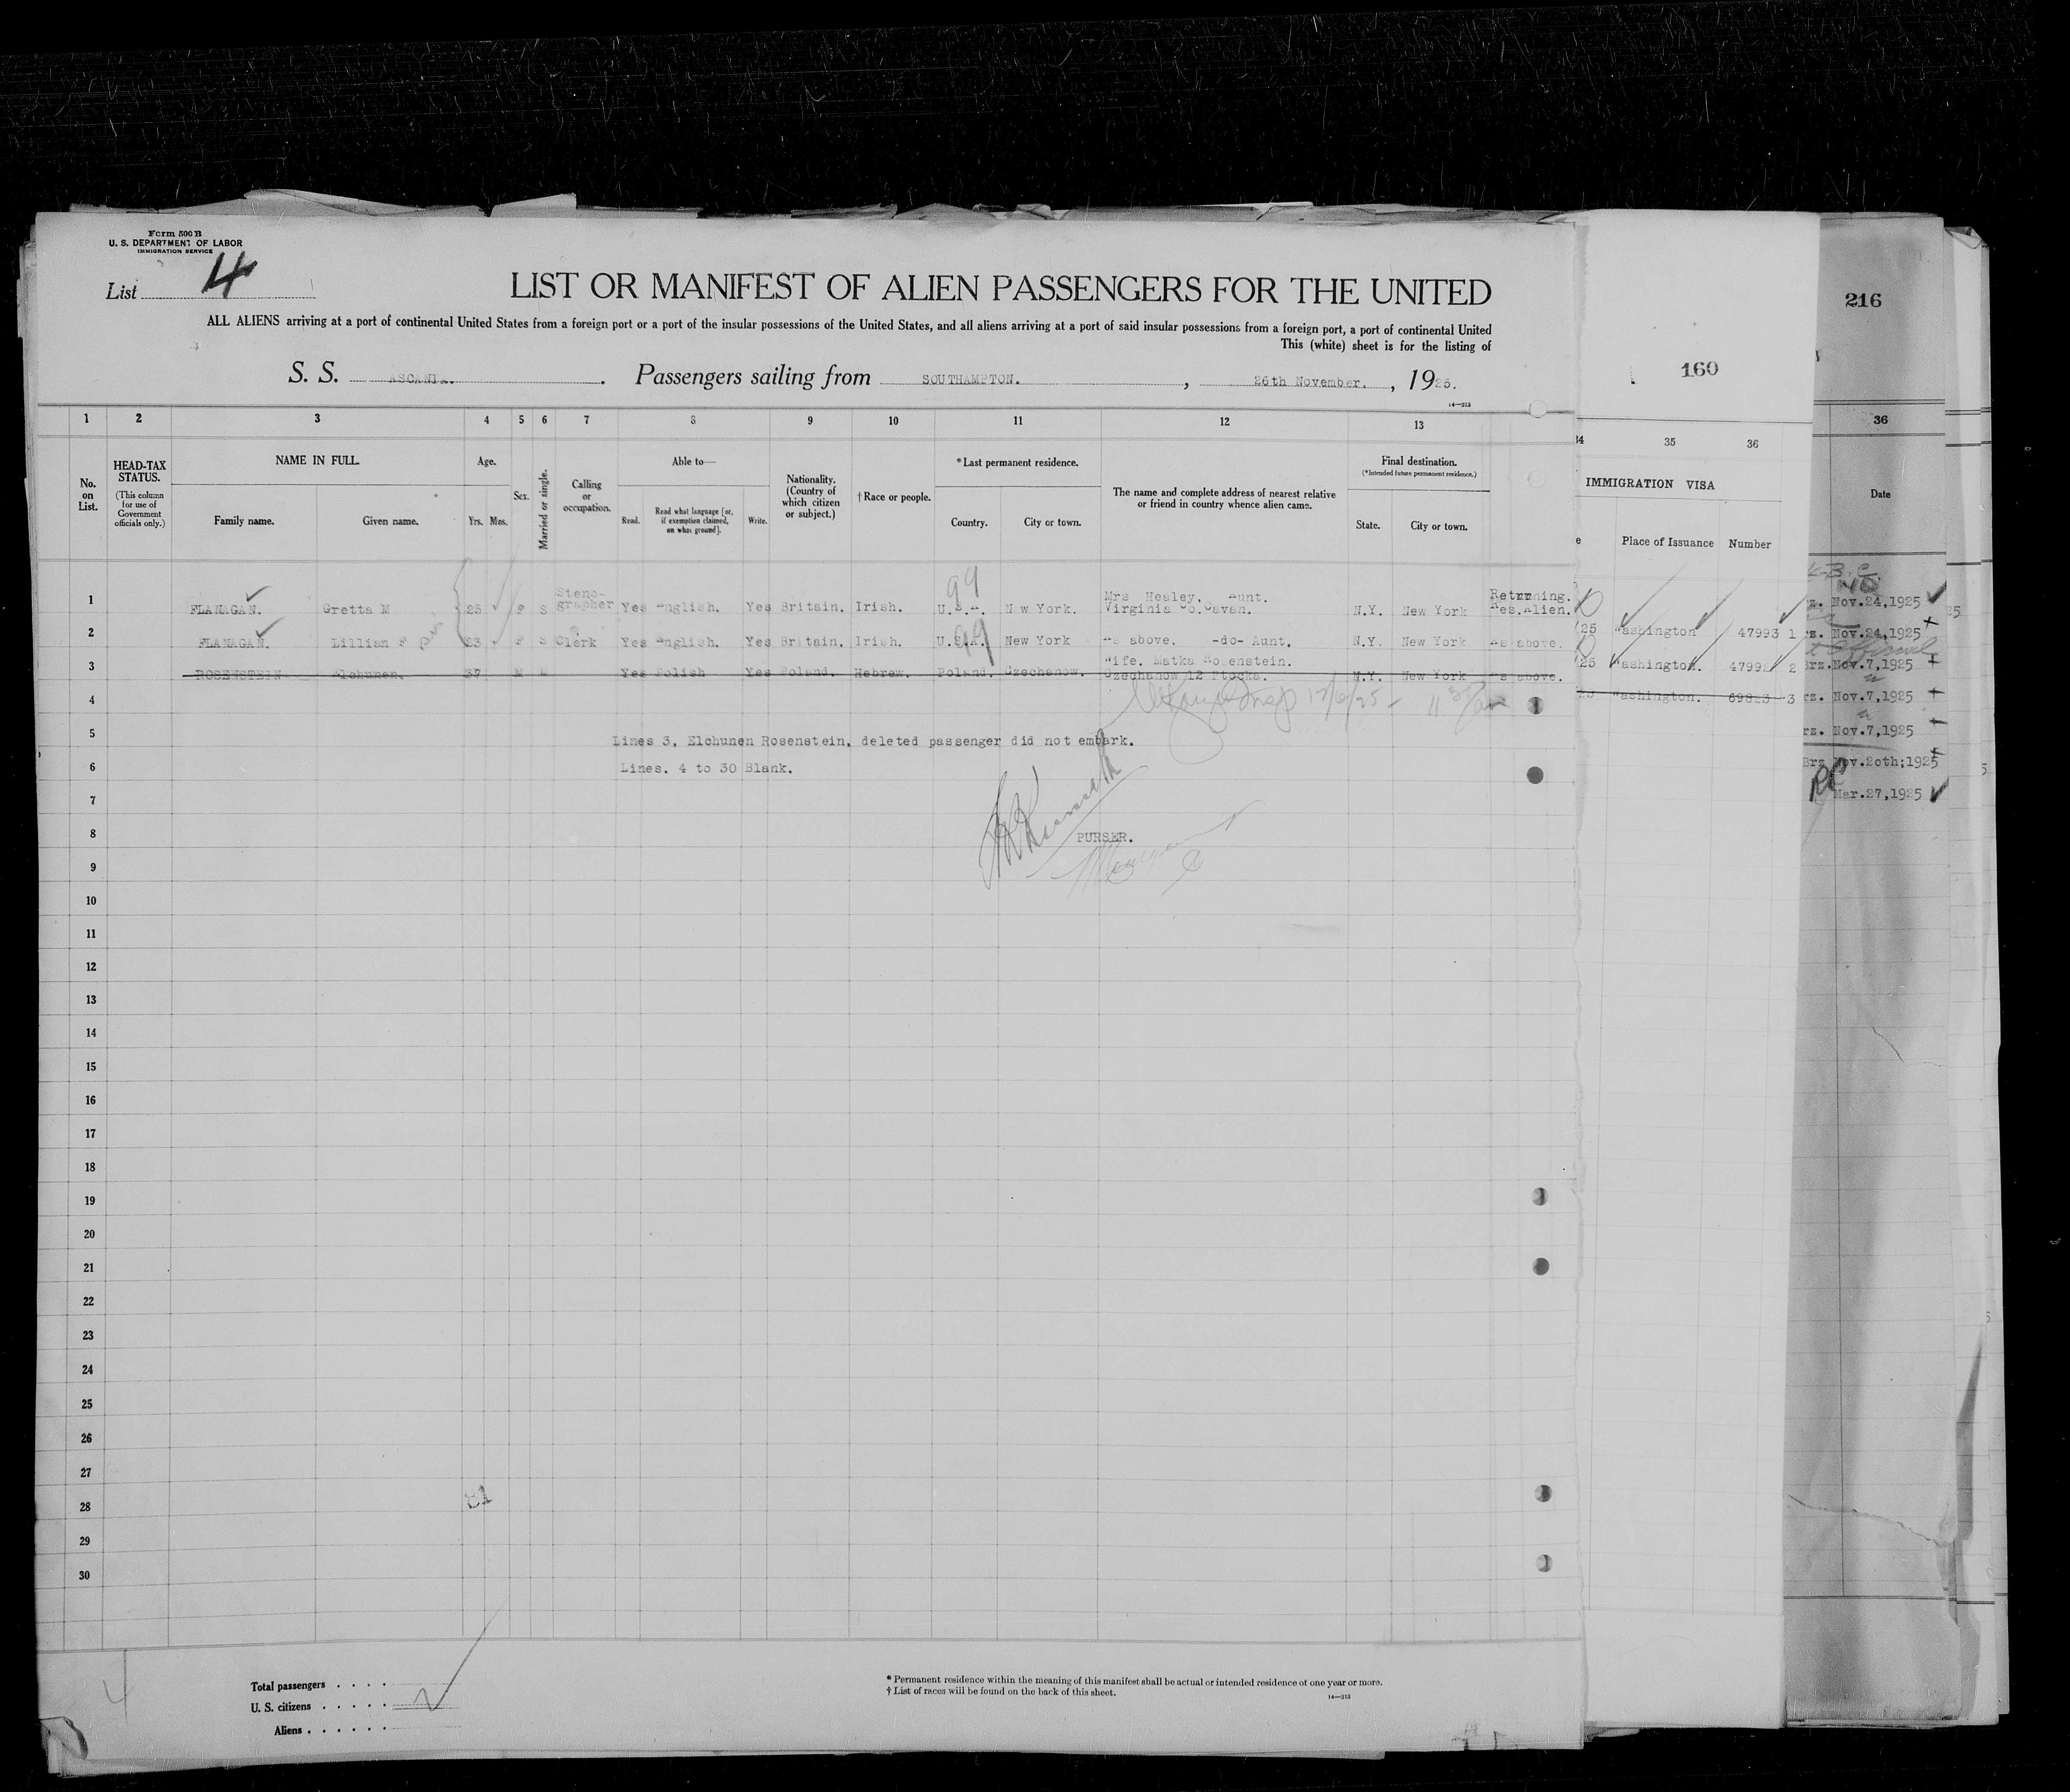 Form 500 B
U. S. DEPARTMENT OF LABOR
IMMIGRATION SERVICE
List 4
LIST OR MANIFEST OF ALIEN PASSENGERS FOR THE UNITED
ALL ALIENS arriving at a port of continental United States from a foreign port or a port of the insular possessions of the United States, and all aliens arriving at a port of said insular possessions from a foreign port, a port of continental United
This (white) sheet is for the listing of
S. S. ASCANIA. Passengers sailing from SOUTHAMPTON. , 26th November. , 1925.
14—213
1 2 3 4 5 6 7 8 9 10 11 12 13
No. on List.
HEAD-TAX STATUS.
(This column for use of Government officials only.)
NAME IN FULL.
Family name. Given name.
Age.
Yrs. Mos.
Sex.
Married or single.
Calling or occupation.
Able to—
Read. Read what language [or, if exemption claimed, on what ground]. Write.
Nationality. (Country of which citizen or subject.)
† Race or people.
* Last permanent residence.
Country. City or town.
The name and complete address of nearest relative or friend in country whence alien came.
Final destination.
(* Intended future permanent residence.)
State. City or town.
1 FLANAGAN. Gretta M 25 F S Steno-grapher Yes English. Yes Britain. Irish. U.S.A. N w York. Mrs Healey. Aunt. Virginia Co.Cavan. N.Y. New York Returning. Res.Alien.
99
2 FLANAGAN. Lillian F 23 F S Clerk Yes English. Yes Britain. Irish. U.S.A. New York As above. -do- Aunt. N.Y. New York As above.
99
3 ROSENSTEIN Elchunen. 37 M M Yes Polish Yes Poland. Hebrew. Poland. Czechanow. Wife. Matka Rosenstein. Czechanow 12 Plocka. N.Y. New York As above.
4
12/6/25 -
5 Lines 3, Elchunen Rosenstein, deleted passenger did not embark.
6 Lines. 4 to 30 Blank.
7
8 PURSER.
9
10
11
12
13
14
15
16
17
18
19
20
21
22
23
24
25
26
27
28
29
30
4
Total passengers . . . .
U. S. citizens . . . . .
Aliens . . . . . .
* Permanent residence within the meaning of this manifest shall be actual or intended residence of one year or more.
† List of races will be found on the back of this sheet.
14—213
160
35 36
IMMIGRATION VISA
Place of Issuance Number
25 Washington 47993 1
25 Washington. 47992 2
Washington. 69823 3
216
36
Date
Nov.24,1925
Nov.24,1925
Nov.7,1925
Nov.7,1925
Nov.7,1925
Nov.20th;1925
Mar.27,1925